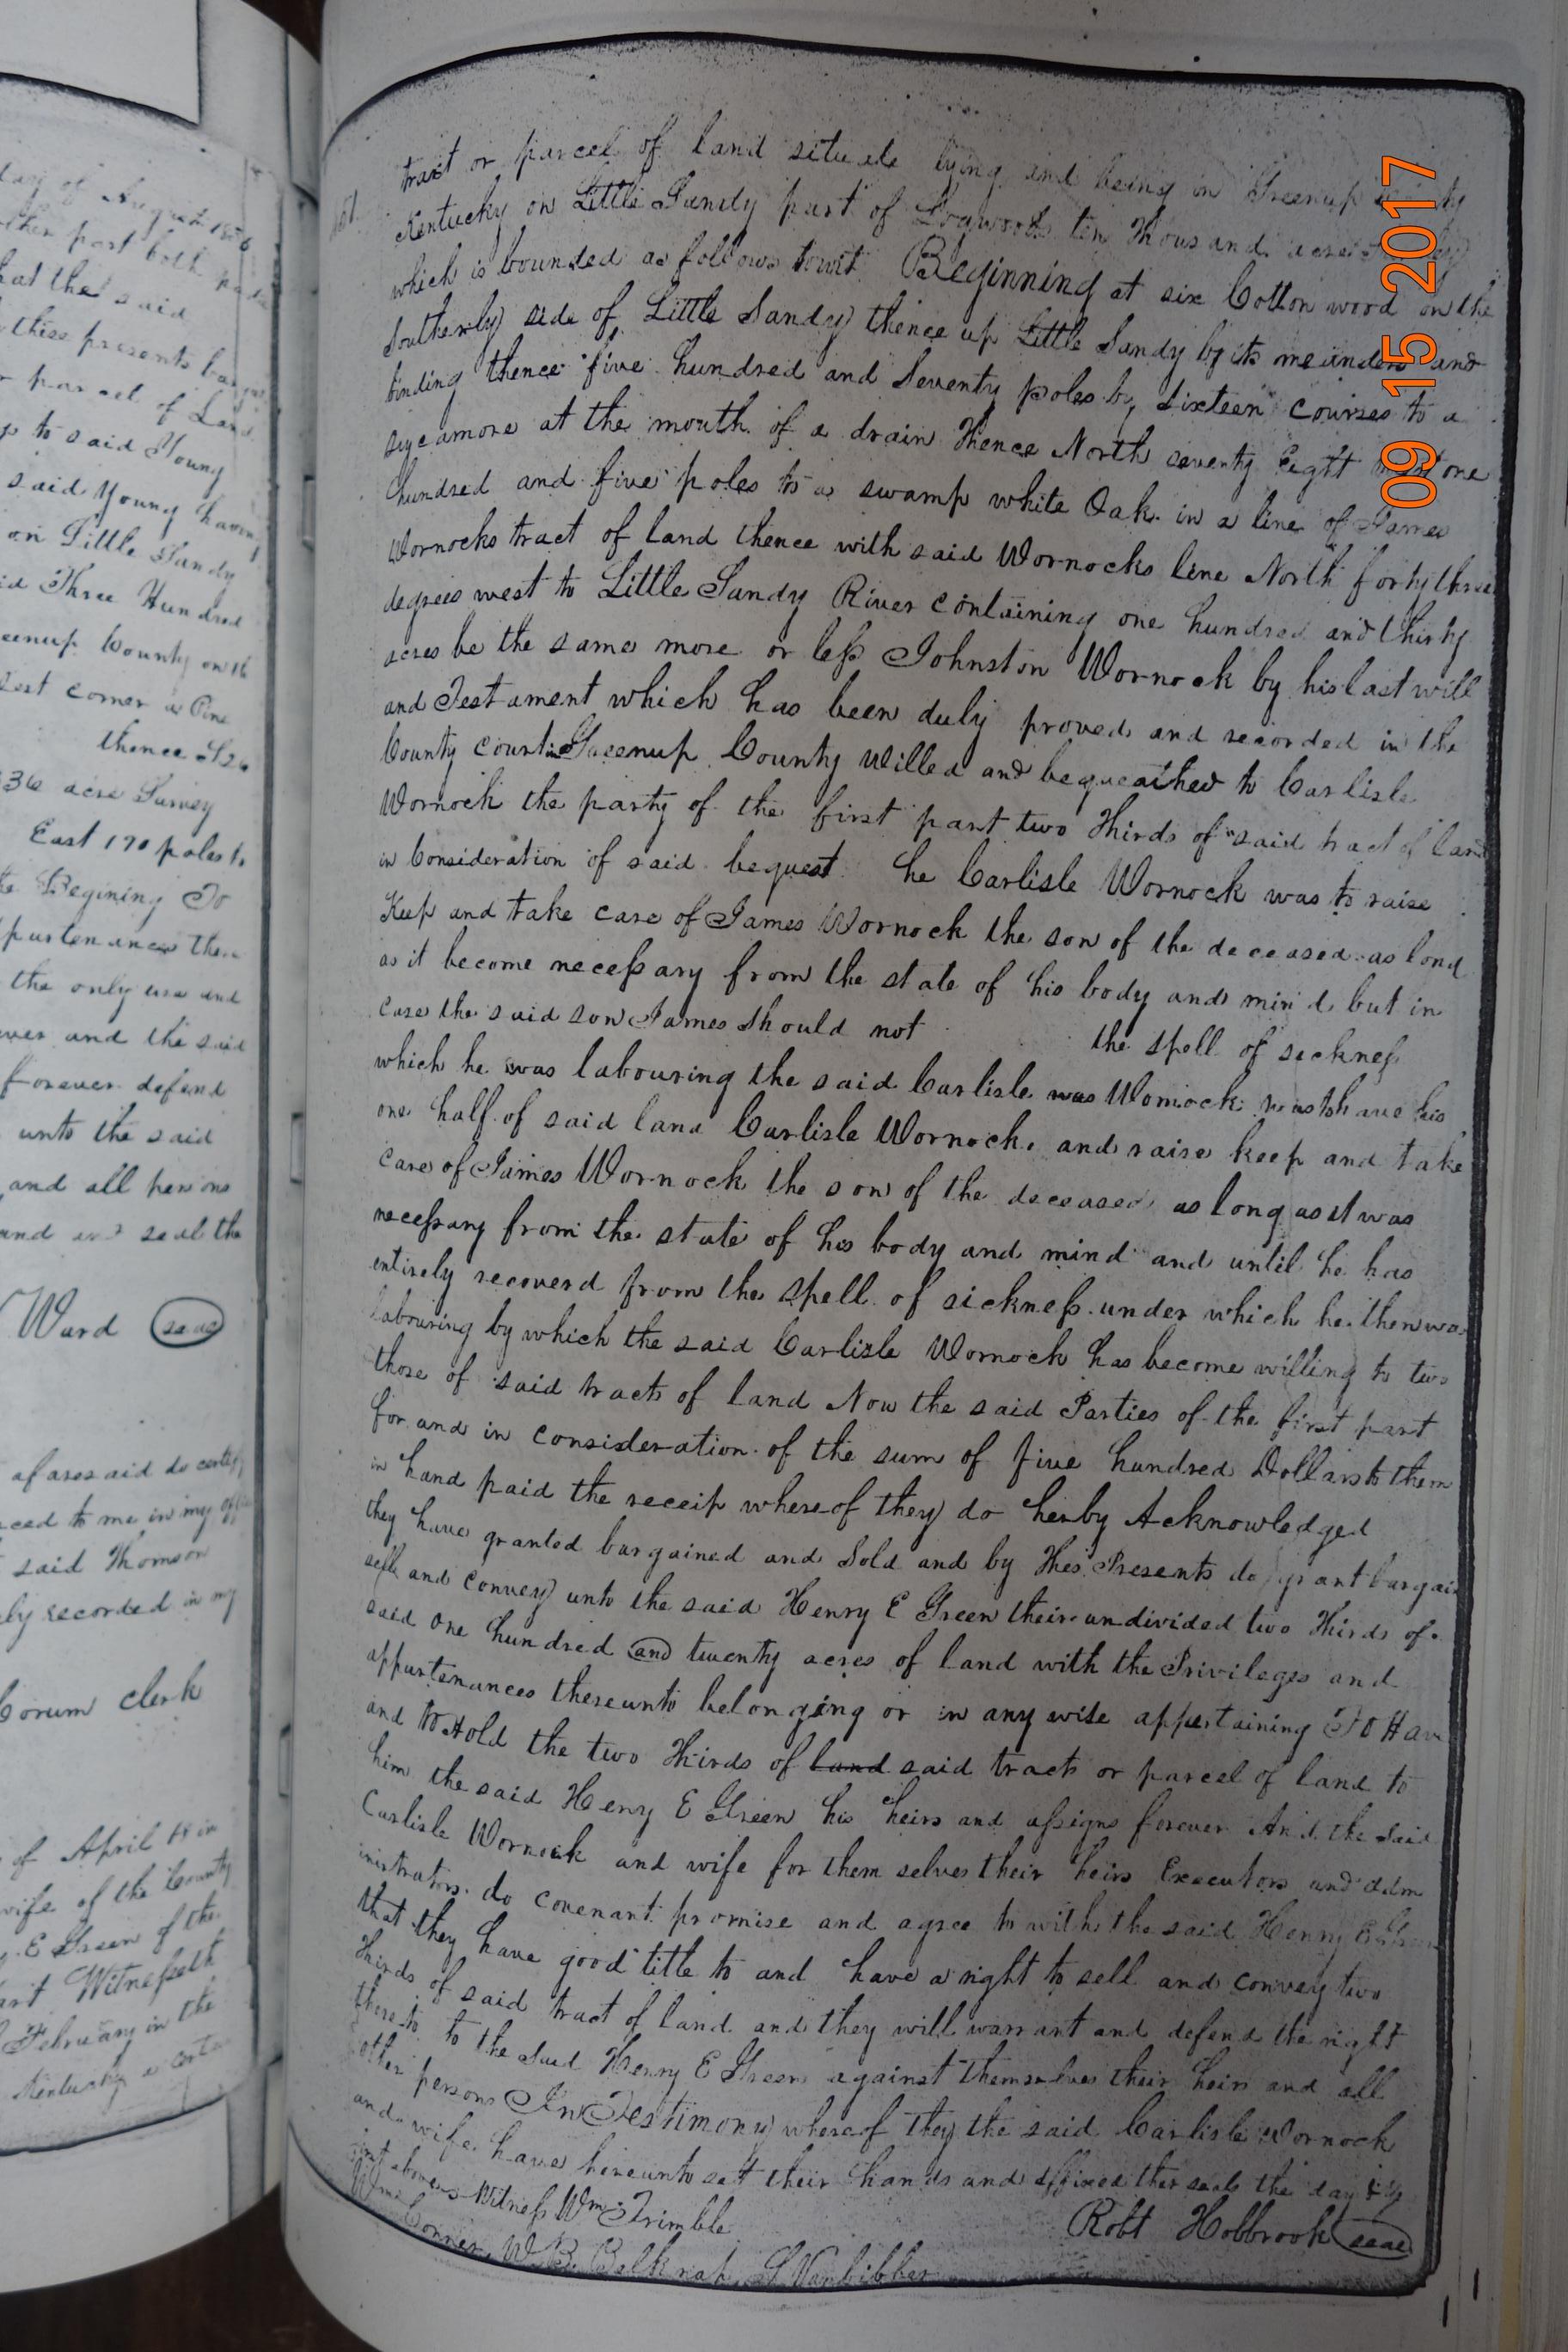 day of August 1856
other part both
hat the said
these presents
parcel of Land
to said Young
said Young having
on Little Sandy
id Three Hundred
eenup County on th
est corner a Pine
thence S 26
36 acre Survey
East 170 poles to
e Begining To
purtenances then
the only use and
ver and the said
forever defend
unto the said
and all persons
and seal the
Ward seal
aforesaid do certify
ced to me in my office
said Thomson
ly recorded in my
Corum clerk
of April in
wife of the County
E Green of the
art Witnesseth
February in the
Kentucky a certa
tract or parcel of land situate lying and being in Greenup County
Kentucky on Little Sandy part of Logwoods ten thousand acre
which is bounded as follows towit Beginning at six Cotton wood on the
Southerly side of Little Sandy thence up Little Sandy by its meanders and
binding thence five hundred and Seventy poles by sixteen courses to a
sycamore at the mouth of a drain thence North seventy Eight one
hundred and five poles to a swamp white Oak in a line of James
Wornocks tract of land thence with said Wornocks line North forty three
degrees west to Little Sandy River containing one hundred and thirty
acres be the same more or less Johnston Wornock by his last will
and Testament which has been duly proved and recorded in the
County court in Greenup County Willed and bequeathed to Carlisle
Wornock the party of the first part two thirds of said tract of land
in Consideration of said bequest he Carlisle Wornock was to raise
Keep and take care of James Wornock the son of the deceased as long
as it become necessary from the state of his body and mind but in
case the said son James should not the spell of sickness
which he was labouring the said Carlisle was Wornock was to have his
one half of said land Carlisle Wornock and raise keep and take
care of James Wornock the son of the deceased as long as it was
necessary from the state of his body and mind and until he has
entirely recoverd from the spell of sickness under which he then was
labouring by which the said Carlisle Wornock has become willing to two
those of said tracts of land Now the said Parties of the first part
for and in consideration of the sum of five hundred Dollars to them
in hand paid the receip whereof they do herby Acknowledged
they have granted bargained and Sold and by thes Presents do grant bargain
sell and convey unto the said Henry E Green their undivided two thirds of
said one hundred and twenty acres of land with the Privileges and
appurtenances thereunto belonging or in any wise appertaining To Have
and to Hold the two thirds of land said tracts or parcel of land to
him the said Henry E Green his heirs and assigns forever And the said
Carlisle Wornock and wife for them selves their heirs Executors and adm
inistrators do covenant promise and agree to with the said Henry E Green
that they have good title to and have a right to sell and convey two
thirds of said tract of land and they will warrant and defend the right
thereto to the said Henry E Green against themselves their heirs and all
other persons In Testimony whereof they the said Carlisle Wornock
and wife have hereunto set their hands and affixed ther seals the day &
above Witness Wm Trimble
Robt Hobbrook seal
Wm Conner W. B. Belknap S Vanbibber
09 15 2017